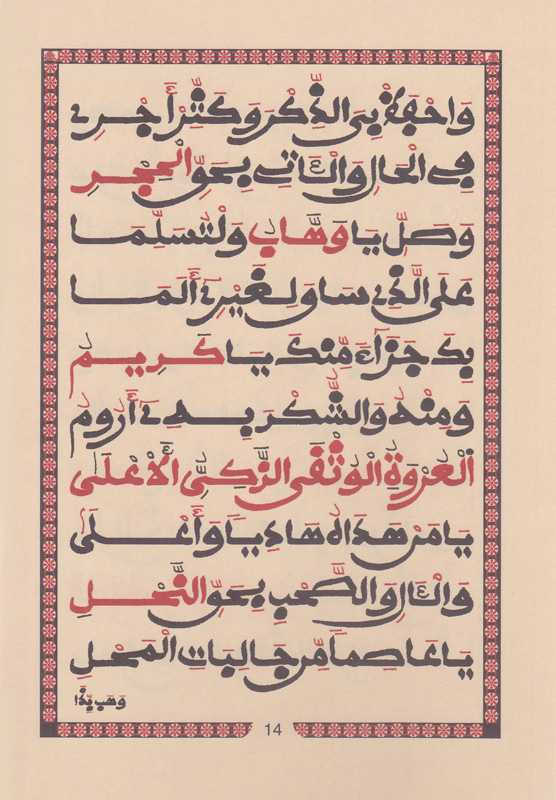 وَاحْفَظْ بِيَ الذِّكْرَ وَكَثِّرْ أَجْرِي
فِي الْحَالِ وَالْآتِي بِحَقِّ الْحِجْرِ
وَصَلِّ يَا وَهَّابُ وَلْتُسَلِّمَا
عَلَى الَّذِي سَاقَ لِغَيْرِي أَلَمَا
بِكَ جَزَاءً مِّنْكَ يَا كَرِيمُ
وَمِنْهُ وَالشُّكْرَ بِهِ أَرُومُ
الْعُرْوَةِ الْوُثْقَى الزَّكِيِّ الْأَعْلَى
يَا مَنْ هَدَاهُ هَادِياً وَأَعْلَى
وَالْآلِ وَالصَّحْبِ بِحَقِّ النَّحْلِ
يَا عَاصِماً مِّنْ جَالِبَاتِ الْمَحْلِ
وَهَب بِّذَا
14